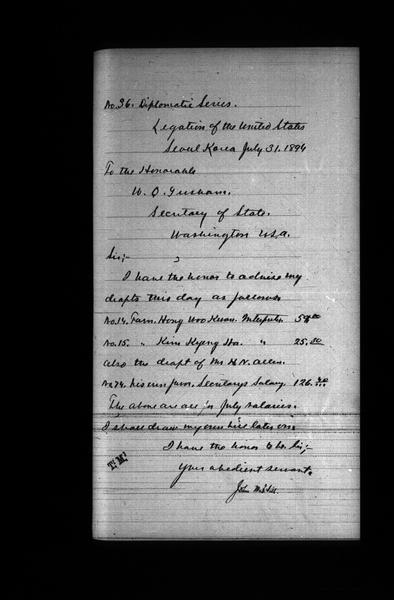 No. 36. Diplomatic Series.
Legation of the United States
Seoul Korea July 31. 1894
To the Honorable
W. Q. Gresham.
Secretary of State.
Washington U.S.A.
Sir;-
I have the honor to advise my
drafts this day as follows
No. 14. Favr. Hong Woo Kwan. Interpreter
No. 15. " Kim Kyeng Ha. " 25.00
Also the draft of Mr H. N. Allen.
No 74. his own favr. Secretarys Salary. 126.
The above are all in July salaries.
I shall draw my own bill later on.
I have the honor to be. Sir;-
Your obedient servant.
T. M.
John M. B. Sill.